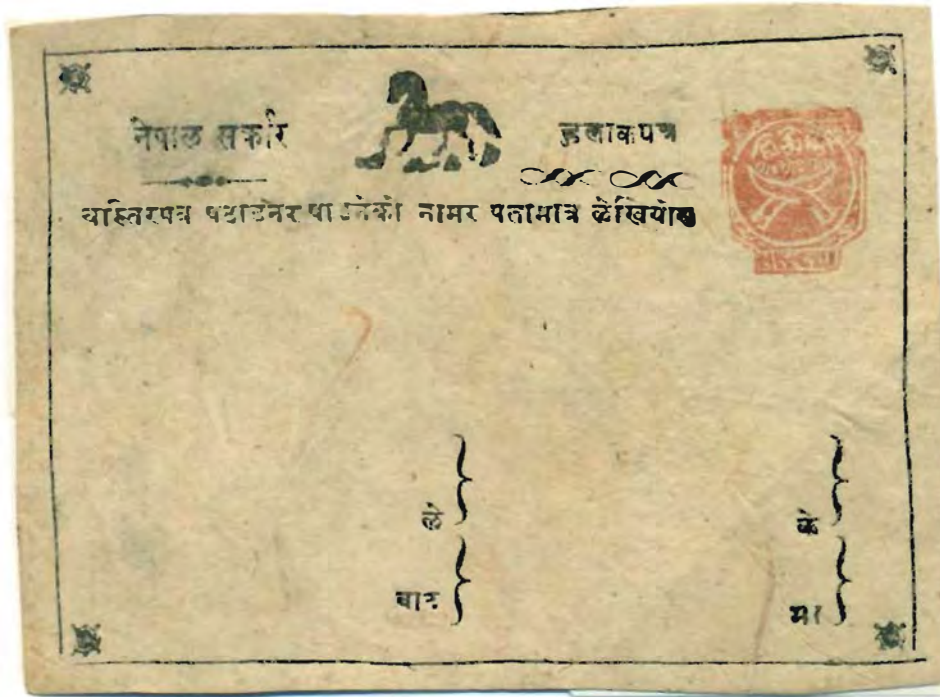 नेपाल सर्कारि हुलाकपत्र
यस्तिरपत्र पठाउनेर पाउनेको नामर पतामात्र लेखियोस
ले ले
बाट मा